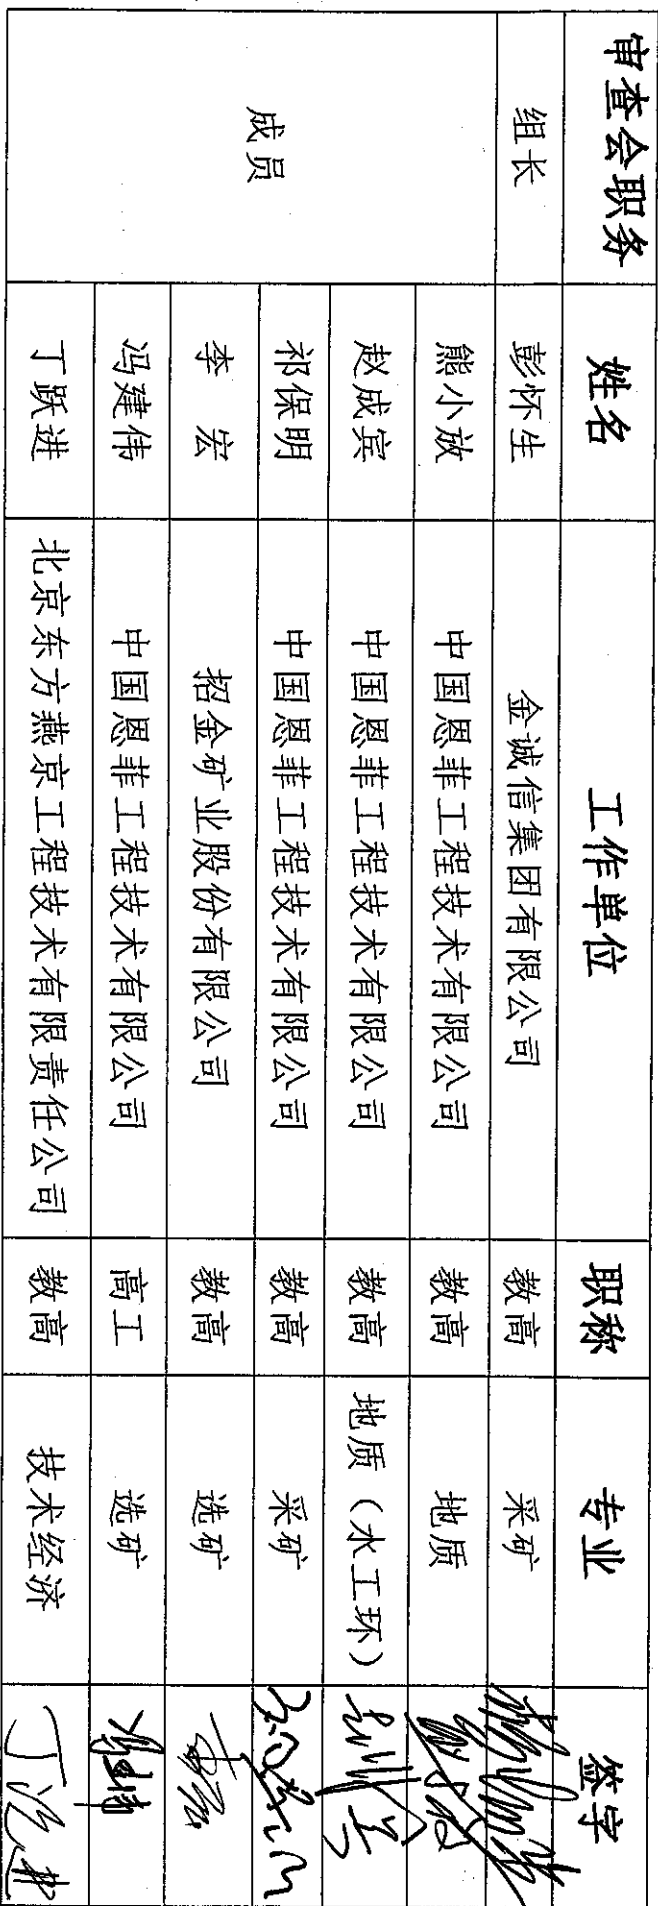 审查会职务 姓名 工作单位 职称 专业 签字
组长 彭怀生 金诚信集团有限公司 教高 采矿
成员 熊小放 中国恩菲工程技术有限公司 教高 地质
赵成宾 中国恩菲工程技术有限公司 教高 地质（水工环）
祁保明 中国恩菲工程技术有限公司 教高 采矿
李 宏 招金矿业股份有限公司 教高 选矿 李宏
冯建伟 中国恩菲工程技术有限公司 高工 选矿
丁跃进 北京东方燕京工程技术有限责任公司 教高 技术经济 丁跃进